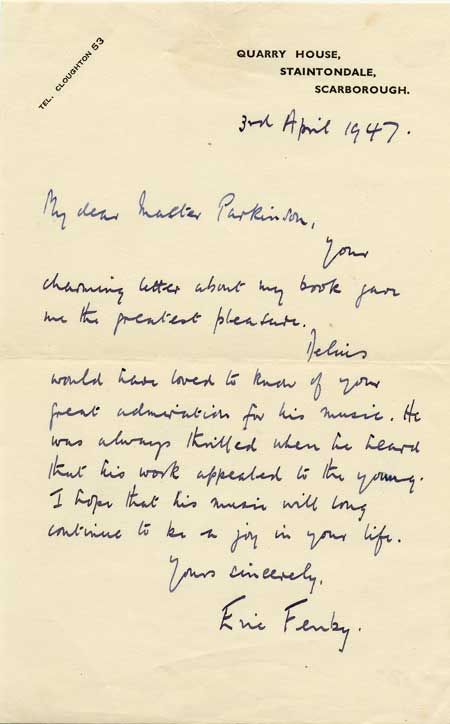 TEL. CLOUGHTON 53
QUARRY HOUSE,
STAINTONDALE,
SCARBOROUGH.
3rd April 1947.
My dear Master Parkinson,
Your
charming letter about my book gave
me the greatest pleasure.
Delius
would have loved to know of your
great admiration for his music. He
was always thrilled when he heard
that his work appealed to the young.
I hope that his music will long
continue to be a joy in your life.
Yours sincerely,
Eric Fenby.